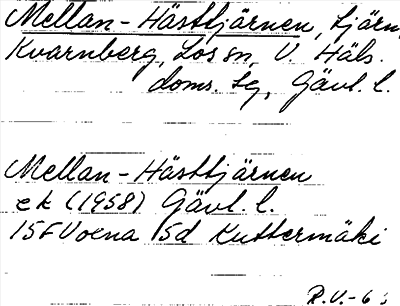 Mellan-Hästtjärnen, tjärn,
Kvarnberg, Los sn, V. Häls.
doms. tg, Gävl. l.
Mellan-Hästtjärnen
ek (1958) Gävl. l.
15F Voxna 5d Kuttermäki
R.V.-6